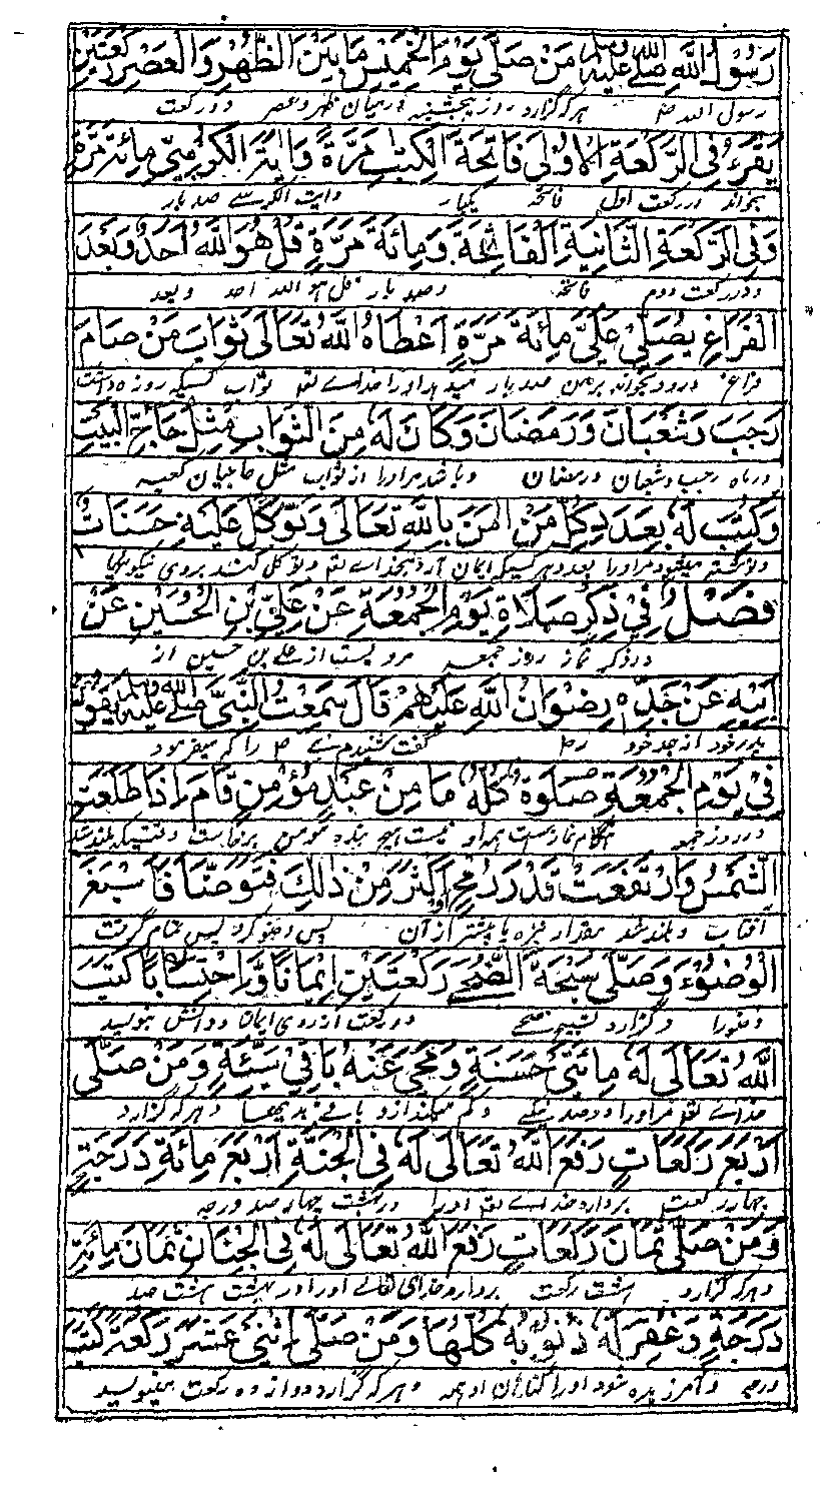 رَسُوْلُ اللّٰهِ صلى الله عليه وسلم مَنْ صَلّٰى يَوْمَ الْخَمِيْسِ مَا بَيْنَ الظُّهْرِ وَالْعَصْرِ رَكْعَتَيْنِ
رسول الله ص هر که گزارد روز پنجشنبه درمیان ظهر و عصر دو رکعت
يَقْرَءُ فِى الرَّكْعَةِ الْاُوْلٰى فَاتِحَةَ الْكِتٰبِ مَرَّةً وَاٰيَةَ الْكُرْسِيِّ مِائَةَ مَرَّةٍ
بخواند در رکعت اول فاتحه یکبار وایت الکرسے صد بار
وَفِى الرَّكْعَةِ الثَّانِيَةِ الْفَاتِحَةَ وَمِائَةَ مَرَّةٍ قُلْ هُوَ اللّٰهُ اَحَدٌ وَبَعْدَ
ودر رکعت دوم فاتحه وصد بار قل هو الله احد وبعد
الْفَرَاغِ يُصَلِّىْ عَلَيَّ مِائَةَ مَرَّةٍ اَعْطَاهُ اللّٰهُ تَعَالٰى ثَوَابَ مَنْ صَامَ
فراغ درود بخواند بر من صد بار میدهد اورا خداے تعم ثواب کسیکه روزه داشت
رَجَبَ وَشَعْبَانَ وَرَمَضَانَ وَكَانَ لَهٗ مِنَ الثَّوَابِ مِثْلُ حَاجِّ الْبَيْتِ
در ماه رجب و شعبان و رمضان وباشد مراورا از ثواب مثل حاجیان کعبه
وَكُتِبَ لَهٗ بِعَدَدِ كُلِّ مَنْ اٰمَنَ بِاللّٰهِ تَعَالٰى وَتَوَكَّلَ عَلَيْهِ حَسَنَاتٌ
ونوشته میشود مراورا بعدد هر کسیکه ایمان آرد بخداے تعم وتوکل کند بروی نیکوئیها
فَضْلٌ فِيْ ذِكْرِ صَلَاةِ يَوْمِ الْجُمُعَةِ عَنْ عَلِيِّ بْنِ الْحُسَيْنِ عَنْ
در ذکر نماز روز جمعه مرویست از علے بن حسین از
اَبِيْهِ عَنْ جَدِّهٖ رِضْوَانُ اللّٰهِ عَلَيْهِمْ قَالَ سَمِعْتُ النَّبِيَّ صلى الله عليه وسلم يَقُوْلُ
پدر خود از جد خود رض گفت شنیدم نبے ص را که میفرمود
فِيْ يَوْمِ الْجُمُعَةِ صَلٰوةٌ كُلُّهٗ مَا مِنْ عَبْدٍ مُؤْمِنٍ قَامَ اِذَا طَلَعَتِ
در روز جمعه هنگام نماز ست همه او نیست هیچ بنده مومن برخاست وقتیکه بلند شد
الشَّمْسُ وَارْتَفَعَتْ قَدْرَ رُمْحٍ اَوْ اَكْثَرَ مِنْ ذٰلِكَ فَتَوَضَّأَ فَاَسْبَغَ
آفتاب وبلند شد مقدار نیزه یا بیشتر از آن پس وضو کرد پس تمام گرفت
الْوُضُوْءَ وَصَلّٰى سُبْحَةَ الضُّحٰى رَكْعَتَيْنِ اِيْمَانًا وَّاِحْتِسَابًا كَتَبَ
وضورا وگزارد تسبیح ضحے دو رکعت از روی ایمان و دانش بنویسد
اللّٰهُ تَعَالٰى لَهٗ مِائَتَىْ حَسَنَةٍ وَمُحِيَ عَنْهُ مِائَتَىْ سَيِّئَةٍ وَمَنْ صَلّٰى
خداے تعم مراورا دو صد نیکے وهر که گزارد
اَرْبَعَ رَكَعَاتٍ رَفَعَ اللّٰهُ تَعَالٰى لَهٗ فِى الْجَنَّةِ اَرْبَعَ مِائَةِ دَرَجَةٍ
چهار رکعت بردارد خداے تعم اورا در بهشت چهار صد درجه
وَمَنْ صَلّٰى ثَمَانَ رَكَعَاتٍ رَفَعَ اللّٰهُ تَعَالٰى لَهٗ فِى الْجِنَانِ ثَمَانَ مِائَةِ
وهر که گزارد هشت رکعت بردارد خدای تعالے اورا در بهشت هشت صد
دَرَجَةٍ وَغُفِرَ لَهٗ ذُنُوْبُهٗ كُلُّهَا وَمَنْ صَلّٰى اِثْنَىْ عَشَرَ رَكْعَةً كَتَبَ
درجه وآمرزیده شود اورا گناهان او همه وهر که گزارد دوازده رکعت بنویسد